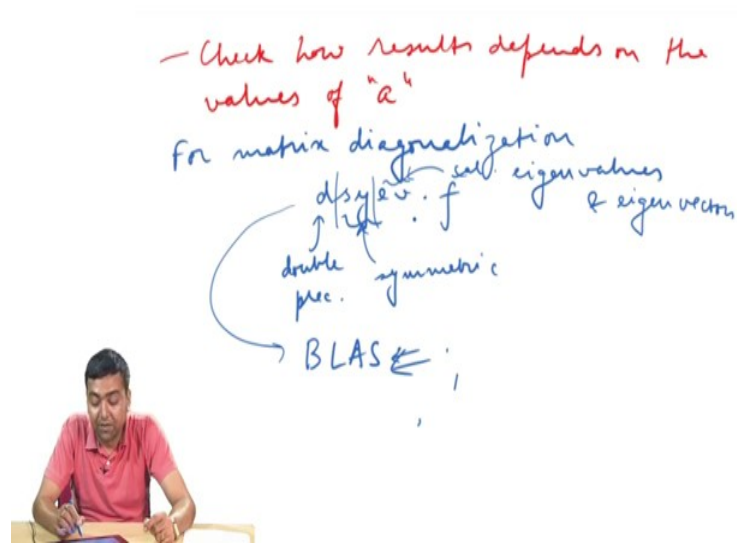 — Check how results depends on the
values of "a"
For matrix diagonalization
d|sy|ev.f cal. eigenvalues
& eigenvectors
double
prec. symmetric
BLAS